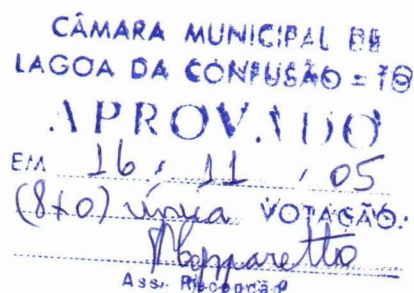 CÂMARA MUNICIPAL DE
LAGOA DA CONFUSÃO = TO
APROVADO
EM 16 / 11 / 05
(8+0) única VOTAÇÃO.
Ass. Recepção